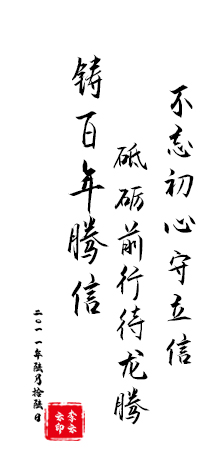 不忘初心守立信
砥砺前行待龙腾
铸百年腾信
二〇一一年陆月拾陆日
李云
云印